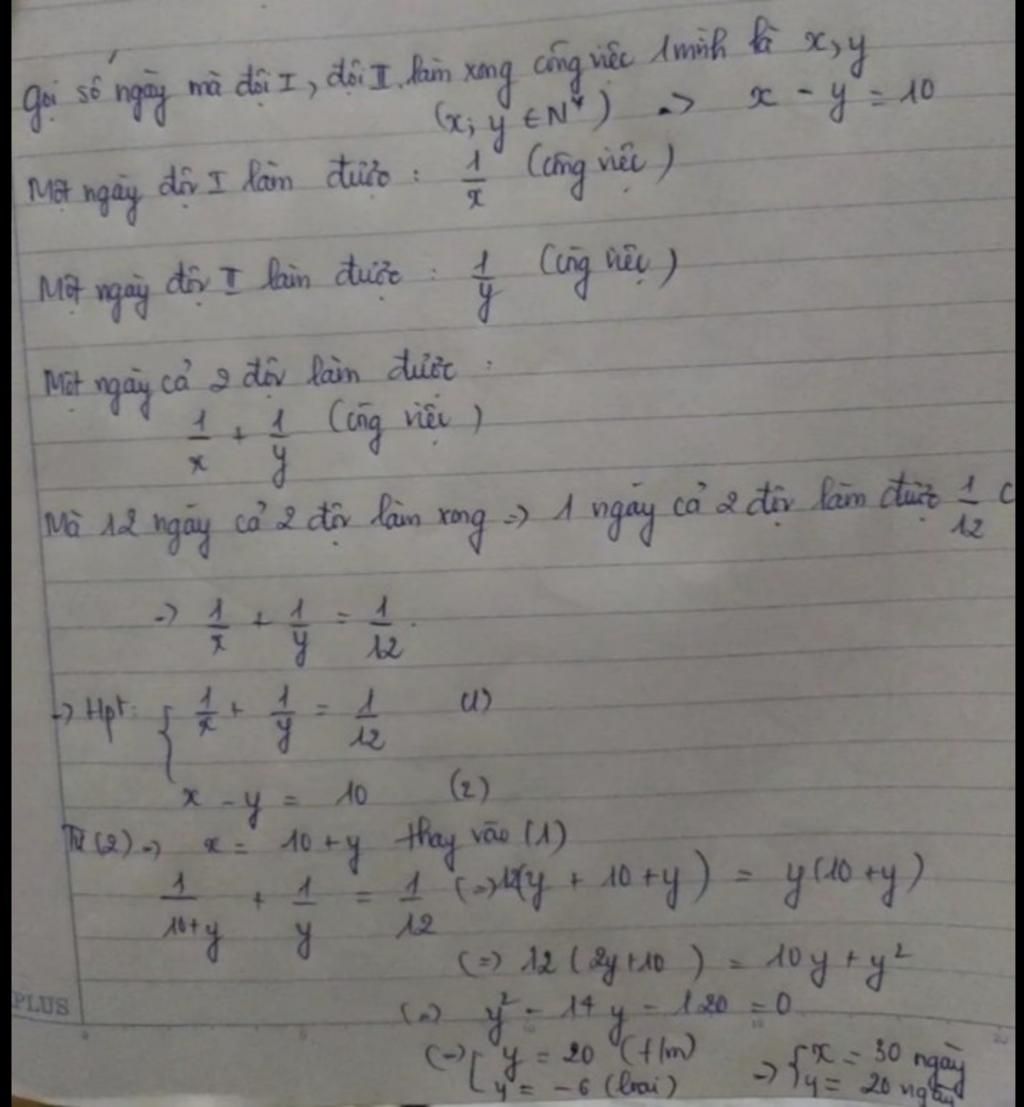 Gọi số ngày mà đội I, đội II làm xong công việc 1 mình là x, y
(x; y ∈ N*) => x - y = 10
Một ngày đội I làm được : 1/x (công việc)
Một ngày đội II làm được : 1/y (công việc)
Một ngày cả 2 đội làm được :
1/x + 1/y (công việc)
Mà 12 ngày cả 2 đội làm xong => 1 ngày cả 2 đội làm được 1/12 c
=> 1/x + 1/y = 1/12.
=> Hpt: { 1/x + 1/y = 1/12 (1)
x - y = 10 (2)
Từ (2) => x = 10 + y thay vào (1)
1/(10+y) + 1/y = 1/12 (=) 12(y + 10 + y) = y(10 + y)
(=) 12 (2y + 10) = 10y + y²
(=) y² - 14y - 120 = 0
(=) [ y = 20 (t/m) => { x = 30 ngày
y = -6 (loại) y = 20 ngày
PLUS